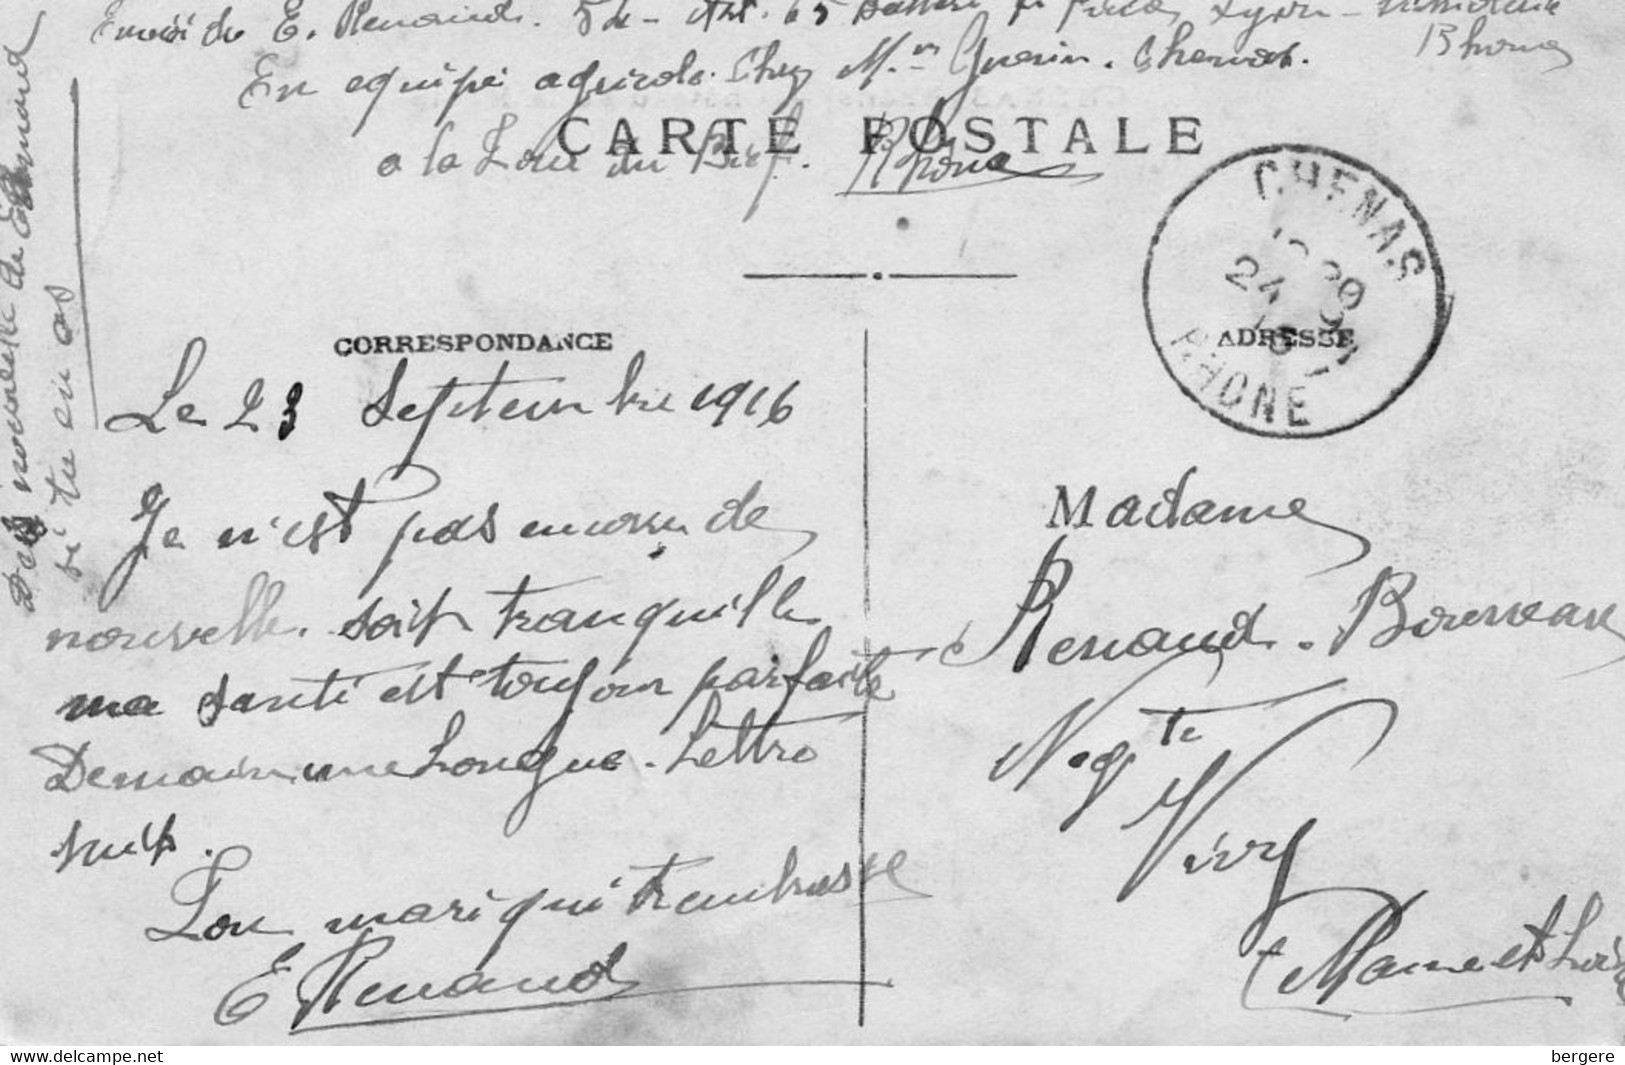 Envoi de E. Renaud. 5e - Art. 65 Batterie Lyon -
Rhône
En equipe agricole. Chez M. Guerin. Chenas.
a la Tour du Bief. Rhône
CARTE POSTALE
CHENAS
24
RHONE
CORRESPONDANCE
ADRESSE
Le 23 Septembre 1916
Je n'est pas encore de
nouvelle. soit tranquille
ma santé est toujour parfaite
Demain une Longue Lettre
suit.
Ton mari qui t'embrasse
E Renaud
Des nouvelle de Edmond
si tu en as
Madame
Renaud. Bonneau
Negte
Vivy
Maine et Loire
delcampe.net
bergere